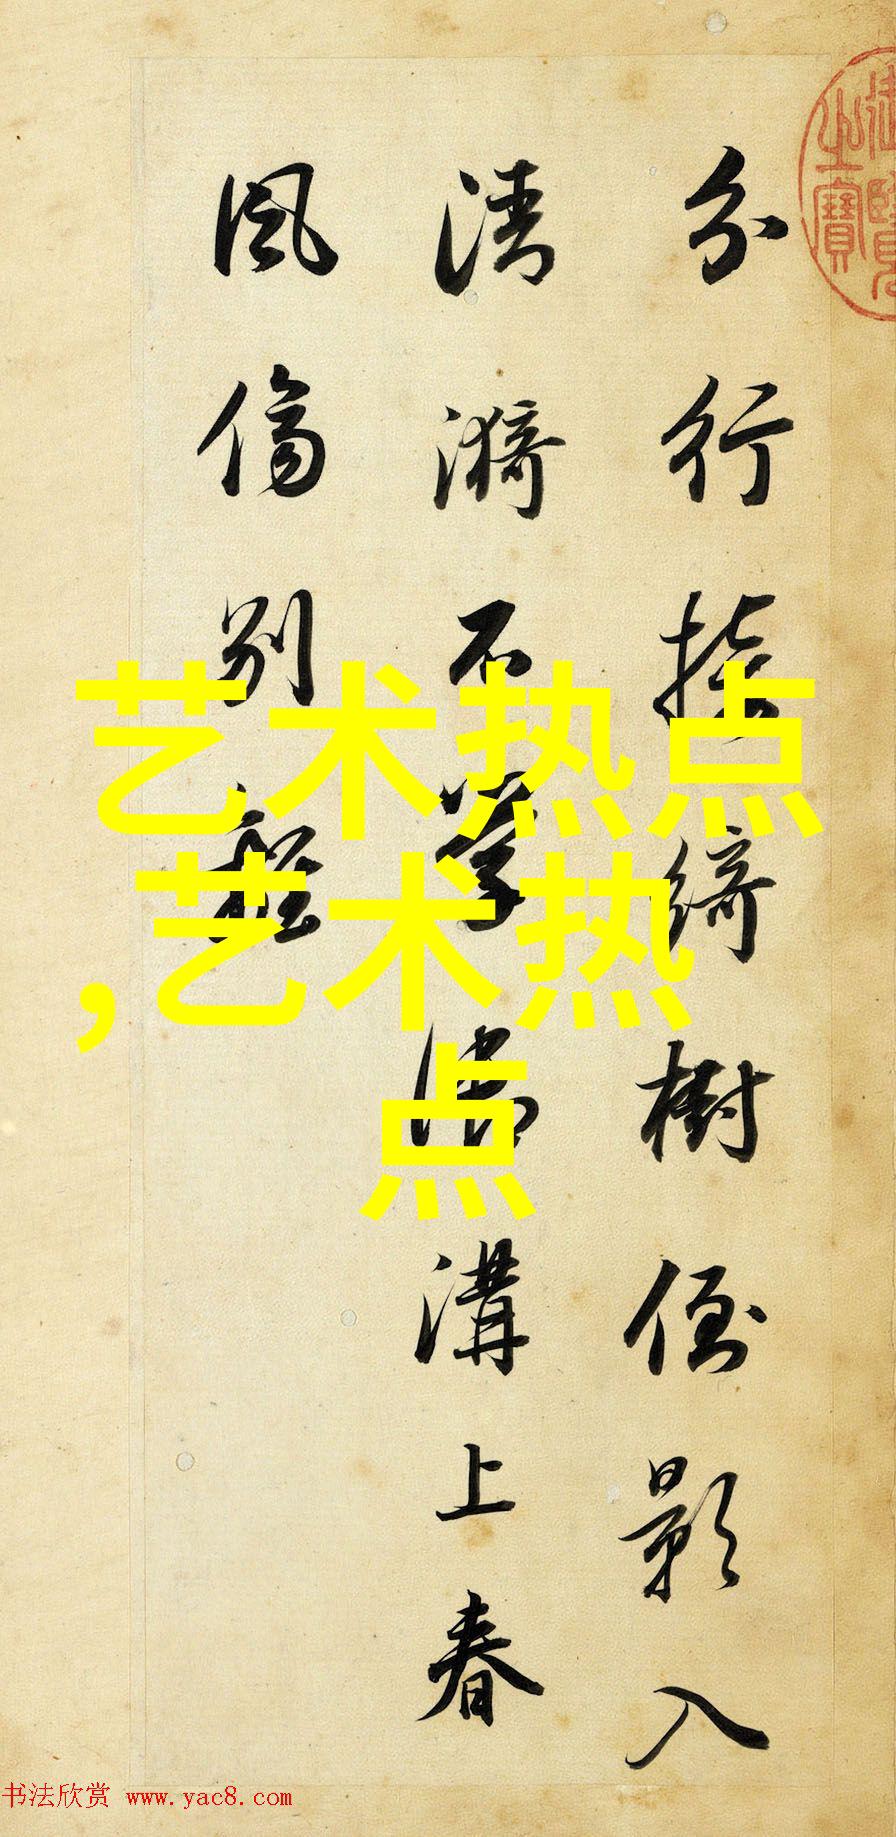 分行接綺樹倒影入
清漪不學御溝上春
風傷別離
之寶
艺术热点
,艺术热
点
书法欣赏 www.yac8.com